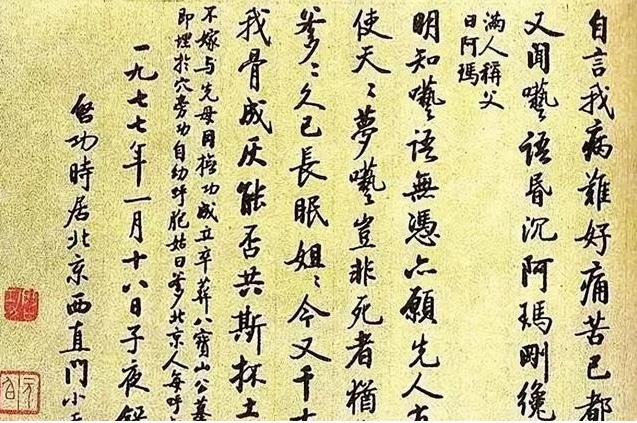 自言我病難好痛苦已都
又聞囈語昏沉阿瑪剛纔
滿人稱父
曰阿瑪
明知囈語無憑亦願先人
使天〻夢囈豈非死者猶
爹〻久已長眠姐〻今又千
我骨成灰能否共斯抔土
不嫁與先母同撫功成立卒葬八寶山公墓
即埋於穴旁功自幼呼胞姑曰爹北京人每呼
一九七七年一月十八日子夜
啓功時居北京西直門小